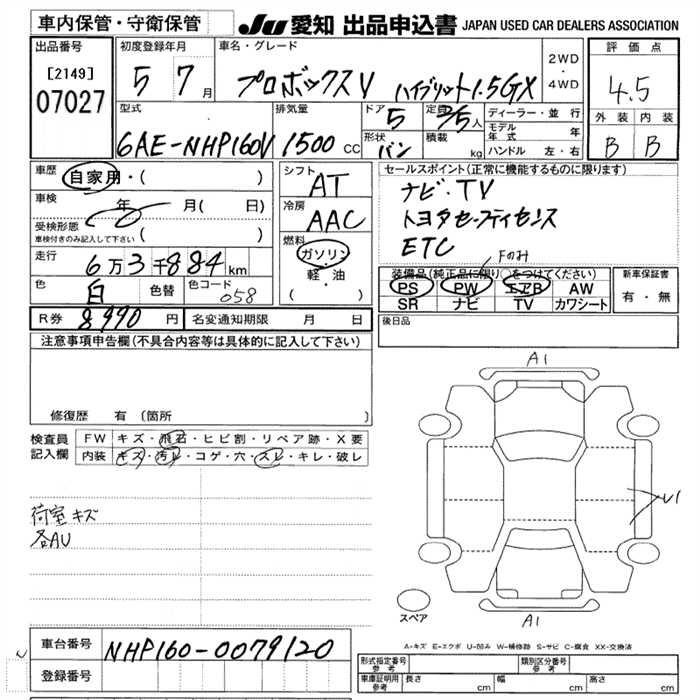 車内保管・守衛保管
JU 愛知 出品申込書 JAPAN USED CAR DEALERS ASSOCIATION
出品番号
[2149]
07027
初度登録年月
5 7月
車名・グレード
プロボックスV ハイブリット1.5GX
2WD
・
4WD
評価点
4.5
外装 内装
B B
型式
6AE-NHP160V
排気量
1500 cc
ドア
5
形状
バン
定員
人
積載
kg
ディーラー・並行
モデル年式 年
ハンドル 左・右
車歴
自家用・( )
車検
年 月( 日)
受検形態
車検付きのみ記入して下さい ( )
走行
6万3千884km
色
白
色替
色コード
058
シフト
AT
冷房
AAC
燃料
ガソリン
・
軽・油
( )
セールスポイント(正常に機能するものに限ります)
ナビ・TV
トヨタセーフティセンス
ETC
Fのみ
装備品(純正品に限り○をつけてください)
PS PW エアB AW
SR ナビ TV カワシート
新車保証書
有・無
R券 8990 円 名変通知期限 月 日
後日品
注意事項申告欄(不具合内容等は具体的に記入して下さい)
修復歴 有(箇所
検査員
記入欄
FW キズ・飛石・ヒビ割・リペア跡・X要
内装 キズ・汚レ・コゲ・穴・スレ・キレ・破レ
荷室キズ
各AU
A1
A1
スペア
A-キズ E-エクボ U-凹み W-補修跡 S-サビ C-腐食 XX-交換済
車台番号 NHP160-0079120
登録番号
形式指定番号
参考
類別区分番号
参考
車庫証明用
参考
長さ cm 幅 cm 高さ cm